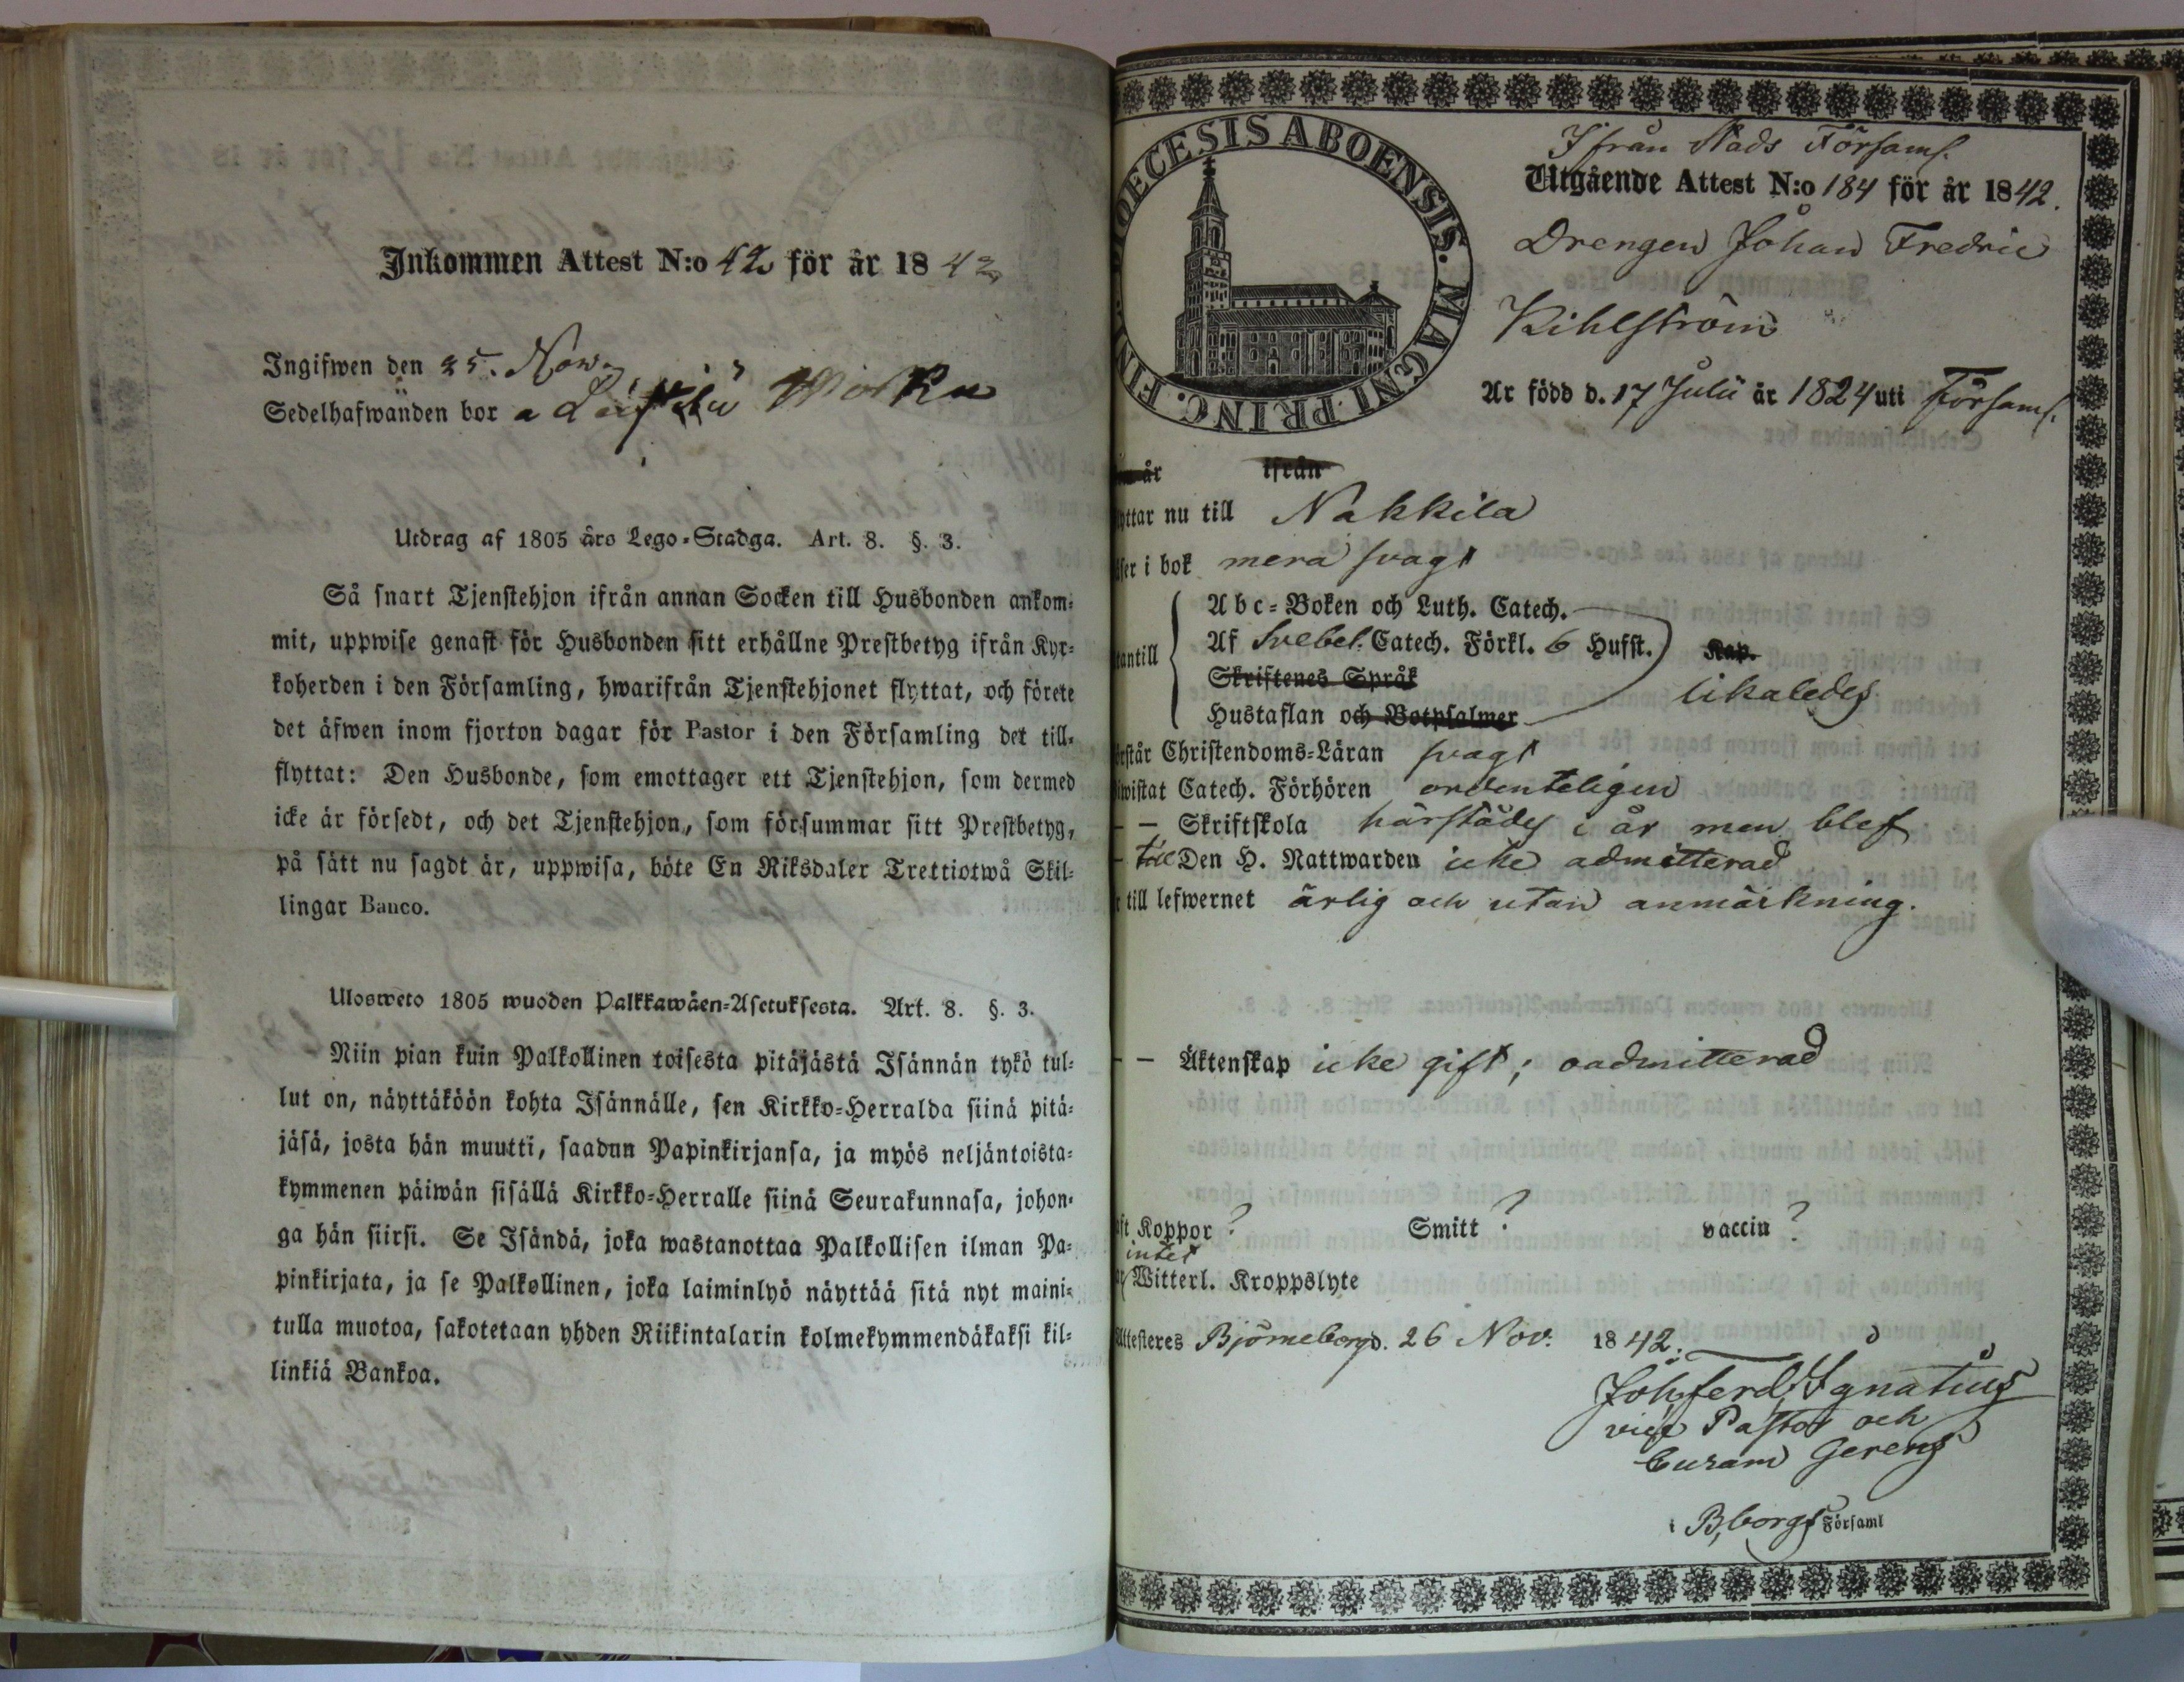 Inkommen Attest N:o 42 för år 1842
Ingifwen den 25. Nov.
Sedelhafwanden bor a
Utdrag af 1805 års Lego-Stadga. Art. 8. §. 3.
Så snart Tjenstehjon ifrån annan Socken till Husbonden ankom-
mit, uppwise genast för Husbonden sitt erhållne Prestbetyg ifrån Kyr-
koherden i den Församling, hwarifrån Tjenstehjonet flyttat, och förete
det äfwen inom fjorton dagar för Pastor i den Församling det till-
flyttat: Den Husbonde, som emottager ett Tjenstehjon, som dermed
icke är försedt, och det Tjenstehjon, som försummar sitt Prestbetyg,
på sätt nu sagdt är, uppwisa, böte En Riksdaler Trettiotwå Skil-
lingar Banco.
Ulosweto 1805 wuoden Palkkawäen-Asetuksesta. Art. 8. §. 3.
Niin pian kuin Palkollinen toisesta pitäjästä Isännän tykö tul-
lut on, näyttäköön kohta Isännälle, sen Kirkko-Herralda siinä pitä-
jäsä, josta hän muutti, saadun Papinkirjansa, ja myös neljäntoista-
kymmenen päiwän sisällä Kirkko-Herralle siinä Seurakunnasa, johon-
ga hän siirsi. Se Isändä, joka wastanottaa Palkollisen ilman Pa-
pinkirjata, ja se Palkollinen, joka laiminlyö näyttää sitä nyt maini-
tulla muotoa, sakotetaan yhden Riikintalarin kolmekymmendäkaksi kil-
linkiä Bankoa.
DIOECESIS ABOENSIS. MAGNI PRINC. FIN
Ifrån Stads Församl.
Utgående Attest N:o 184 för år 1842.
Drengen Johan Fredric
Kihlström
Är född d. 17 Julii år 1824 uti Församl.
år ifrån
yttar nu till Nakkila
äser i bok mera svagt
Abc-Boken och Luth. Catech.
Af Svebel. Catech. Förkl. 6 Hufst. Kap.
tantill
Skriftenes Språk
likaledes
Hustaflan och Botpsalmer
örstår Christendoms-Läran svagt
iwistat Catech. Förhören ordenteligen
— — Skriftskola härstädes i år men blef
— till Den H. Nattwarden icke admitterad
r till lefwernet ärlig och utan anmärkning.
— — Äktenskap icke gift; oadmitterad
aft Koppor ? Smitt ? vaccin ?
intet
ar Witterl. Kroppslyte
Attesteres Björneborg d. 26 Nov. 1842.
Joh. Ferd. Ignatius
vice Pastor och
Curam Gerens
i B,borgs Församl